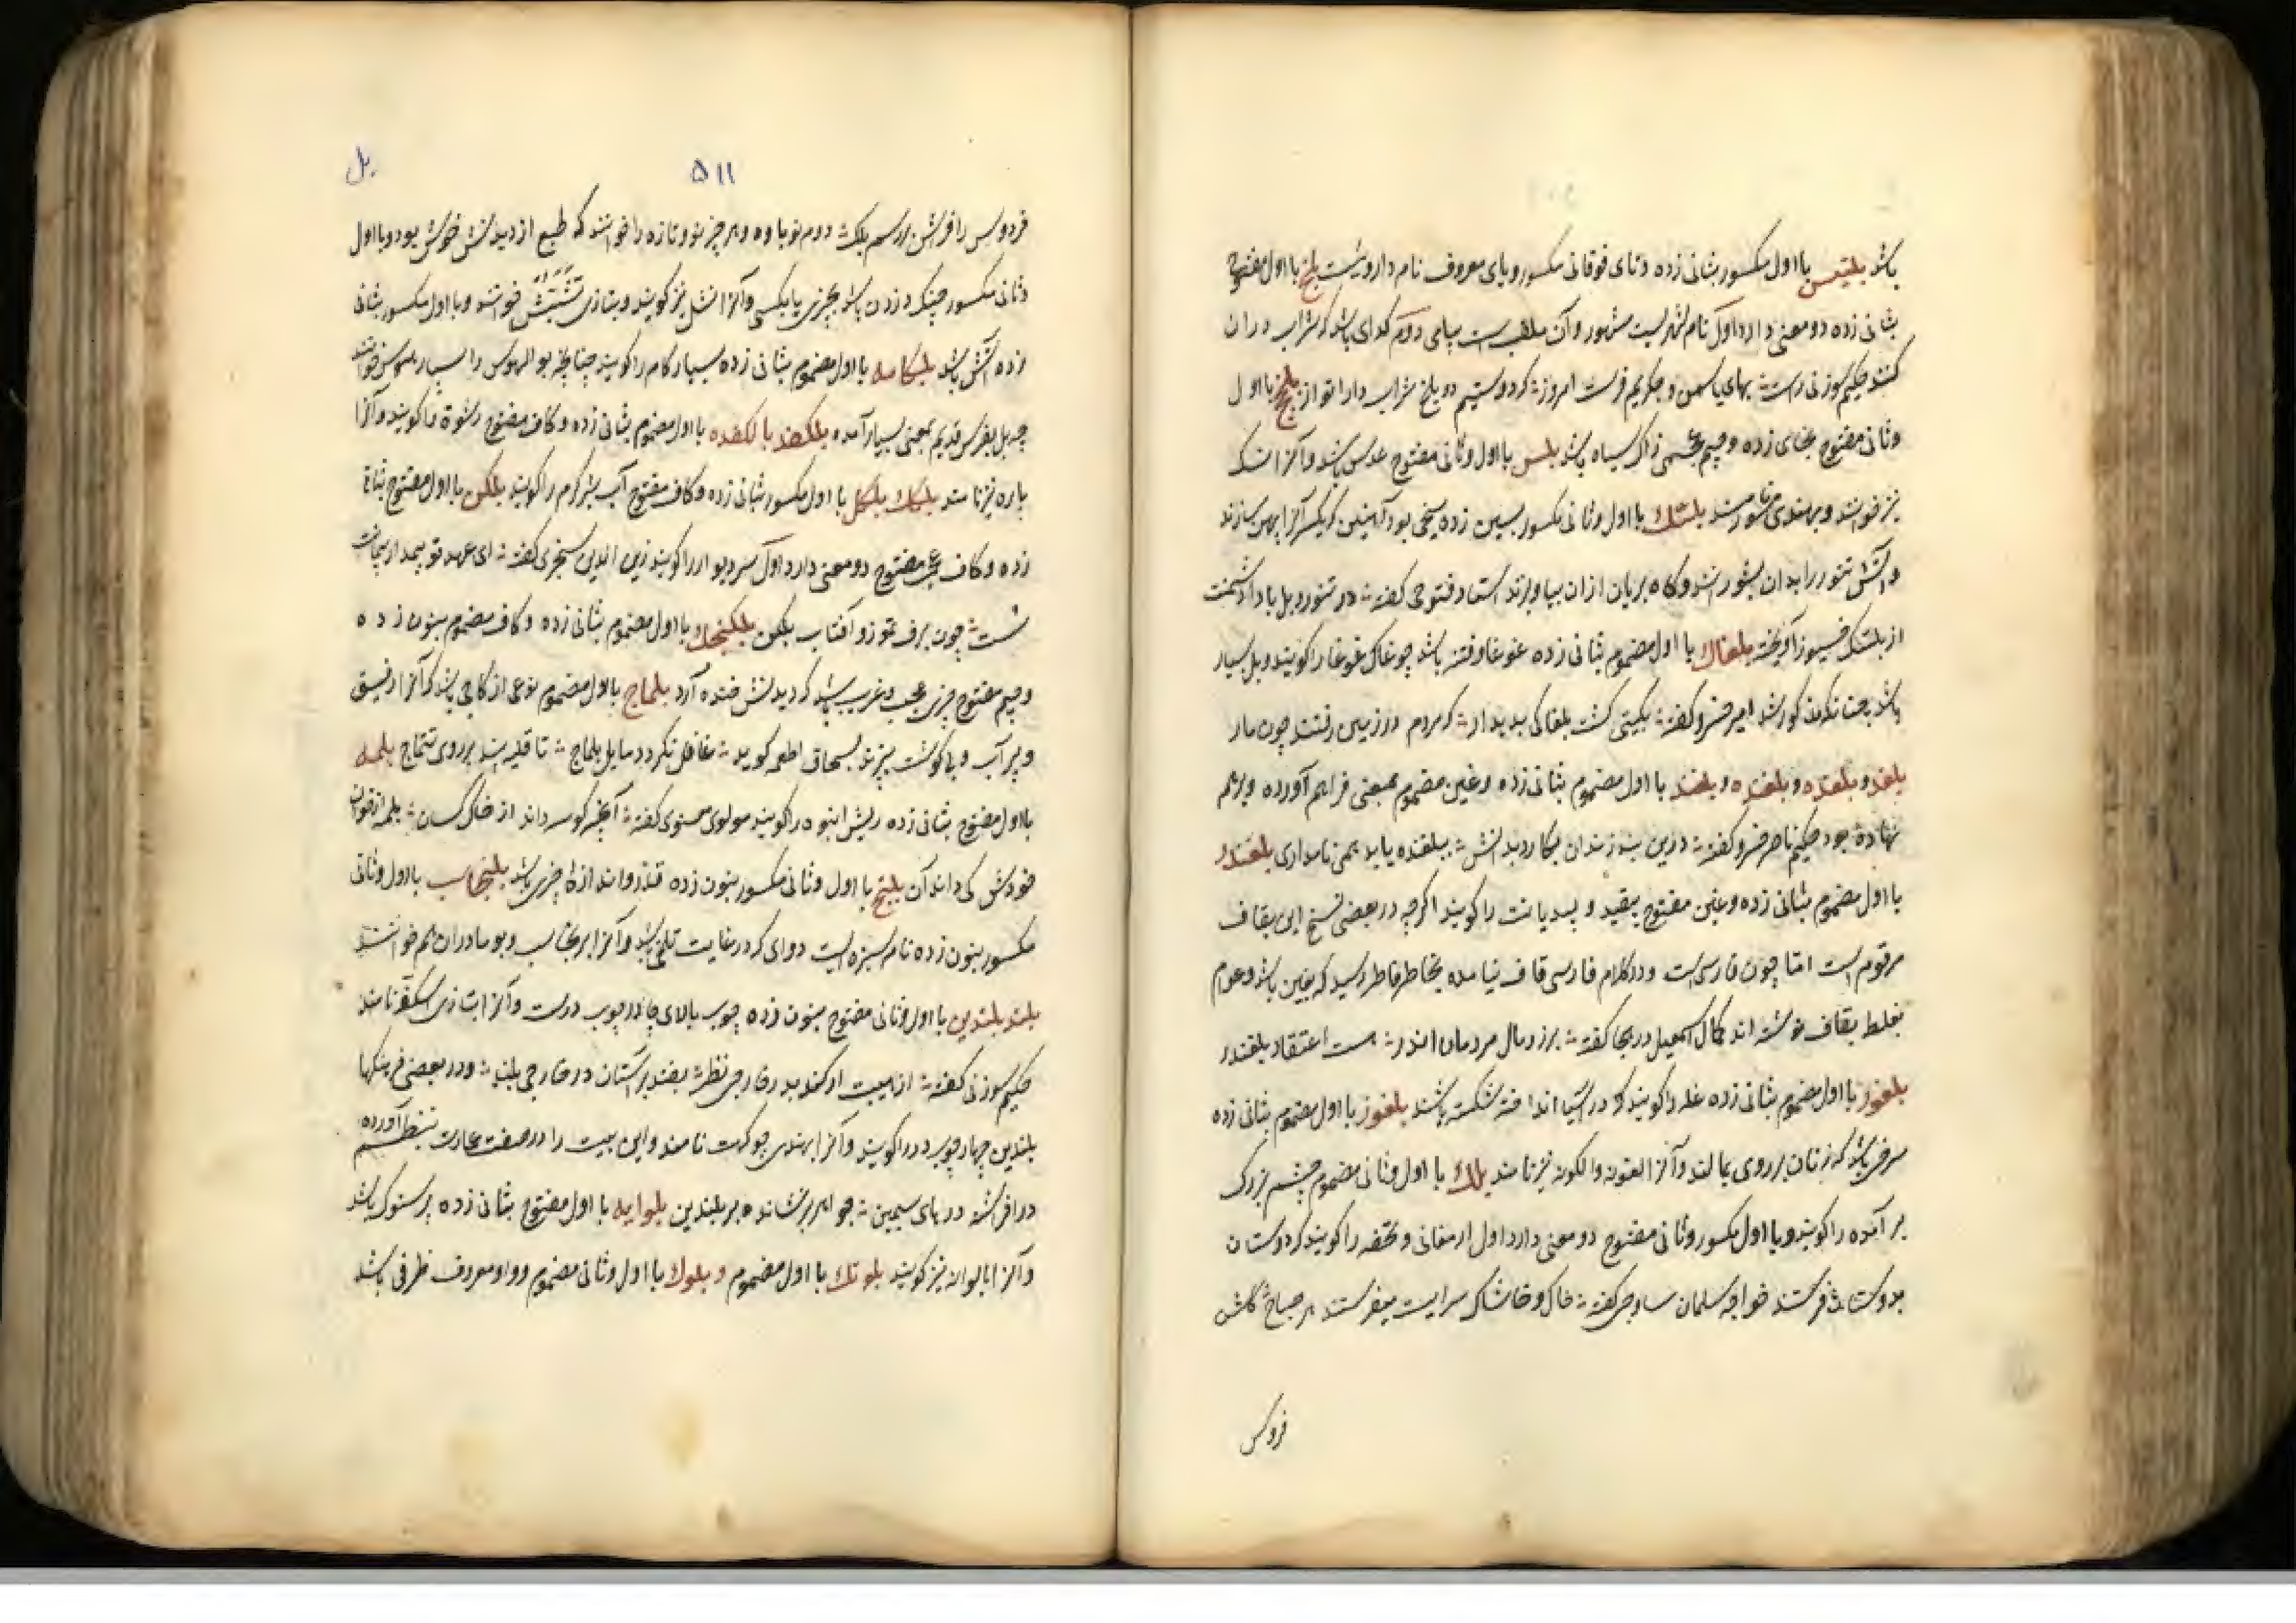 باشد بلیتس با اول مکسور بثانی زده و تای فوقانی مکسور و یای معروف نام داروئیست بلخ با اول مفتوح
بثانی زده دو معنی دارد اول نام شهریست مشهور و آن ملقب است ببامی دوم کدوی باشد که شراب در آن
کنند حکیم سوزنی راست بهای یاسمن و چکریم فرست امروز که دوستیم دو بلخ شراب دار انواز بلخج با اول
و ثانی مفتوح بخای زده و جیم عجمی زاک سیاه باشد بلس با اول و ثانی مفتوح عدس باشد و آنرا نسک
نیز خوانند و بهندی مسور نامند بلسک با اول و ثانی مکسور بسین زده سیخی بود آهنین که یکسر آنرا پهن سازند
و آتش تنور را بدان بشورانند و گاه بریان از آن بیاویزند استاد فتوحی گفته در تنور و بل باد دشمنت
از بلسک آویخته بلغاک با اول مضموم بثانی زده غوغا و فتنه باشد چو غاک غوغا را گویند و بل بسیار
باشد چنانکه مذکور شد امیر خسرو گفته بگیتی گشت بلغاکی پدیدار که مردم در زمین رفتند چون مار
بلغد و بلغده و بلغنده و بلغند با اول مضموم بثانی زده و غین مضموم بمعنی فراهم آورده و برهم
نهاده بود حکیم ناصر خسرو گفته درین بند و زندان بکار و بدانش ببلغنده باید همی نامداری بلغندر
با اول مضموم بثانی زده و غین مفتوح بیقید و بیدیانت را گویند اگرچه در بعضی نسخ این بقاف
مرقوم است اما چون فارسی است و در کلام فارسی قاف نیامده بخاطر فاطر رسید که بغین باشد و عوام
بغلط بقاف نوشته اند کمال اسمعیل در هجا گفته بر زر و مال مردمان اندر هست اعتقاد بلغندر
بلغور با اول مضموم بثانی زده غله را گویند که در آسیا انداخته شکسته باشند بلغونه با اول مضموم بثانی زده
سرخی باشد که زنان بر روی بمالند و آنرا الغونه و الگونه نیز نامند بلک با اول و ثانی مضموم چشم بزرگ
بر آمده را گویند و با اول مکسور و ثانی مفتوح دو معنی دارد اول ارمغانی و تحفه را گویند که دوستان
بدوستان فرستند خواجه سلمان ساوجی گفته خاک و خاشاک سرایت میفرستد هر صباح گلشن
فردوس
۵۱۱ بل
فردوس را فراش بر رسم بلک دوم نوباوه و هر چیز نو و تازه را خوانند که طبع از دیدنش خوش بود و با اول
و ثانی مکسور چنگ در زدن باشد بچیزی یا بکسی و آنرا نشل نیز گویند و بتازی تشبث خوانند و با اول مکسور بثانی
زده آتش باشد بلکامه با اول مضموم بثانی زده بسیار کام را گویند چنانچه بوالهوس را بسیار هوس خوانند
چه بل بفرس قدیم بمعنی بسیار آمده بلکفد با لکفده با اول مضموم بثانی زده و کاف مفتوح رشوة را گویند و آنرا
پاره نیز نامند بلکک بلکل با اول مکسور بثانی زده و کاف مفتوح آب شیر گرم را گویند بلکن با اول مفتوح بثانی
زده و کاف عجمی مفتوح دو معنی دارد اول سر دیوار را گویند زین الدین سنجری گفته ای عهد تو
سست چون برف تموز و آفتاب بلکن بلکنجک با اول مضموم بثانی زده و کاف مضموم بنون زده
و جیم مفتوح چیزی عجب و غریب باشد که دیدنش خنده آرد بلماج با اول مضموم نوعی از کاچی باشد که آنرا رقیق
و پر آب و بی گوشت پزند بسحاق اطعمه گوید غافل نگردد مایل بلماج تا قلیه بیند بر روی تتماج بلمه
با اول مفتوح بثانی زده ریش انبوه را گویند مولوی معنوی گفته آنچه کوسه داند از خانه کسان بلمه از خوان
خودش کی داند آن بلنج با اول و ثانی مکسور بنون زده قدر و اندازه چیزی باشد بلنجاسب با اول و ثانی
مکسور بنون زده نام سبزه است دوائی که در غایت تلخی باشد و آنرا برنجاسب و بومادران هم خوانند
بلند بلندین با اول و ثانی مفتوح بنون زده چوب بالای چادر چوب در است و آنرا بتازی اسکفه نامند
حکیم سوزنی گفته از هیبت ار کند بدر خارجی نظر بفتد بر آستان در خارجی بلند و در بعضی فرهنگها
بلندین چهارچوب در را گویند و آنرا بهندی چوکهت نامند و این بیت را در صفت عمارت بنظم آورده
در افراشته درهای سیمین جواهر برنشانده بر بلندین بلوایه با اول مفتوح بثانی زده پرستوک باشد
و آنرا بالوانه نیز گویند بلوتک با اول مضموم و بلوک با اول و ثانی مضموم و واو معروف ظرفی باشد